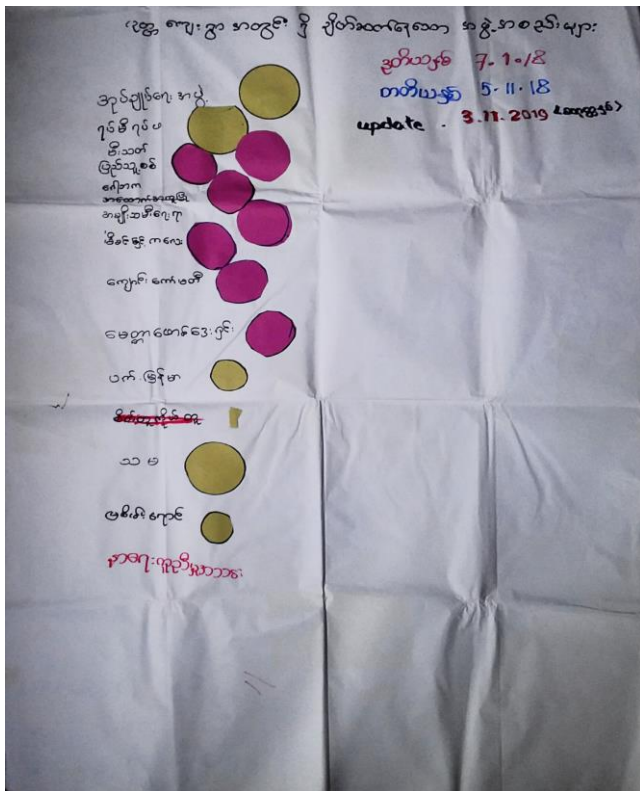 ကျေးရွာ အတွင်း ရှိ ချိတ်ဆက်ရသော အဖွဲ့အစည်းများ
ဒုတိယနှစ် 7.1.18
တတိယနှစ် 5.11.18
update . 3.11.2019
အုပ်ချုပ်ရေး အဖွဲ့
ရပ်မိ ရပ်ဖ
မီးသတ်
ပြည်သူ့စစ်
အမျိုးသမီးရေးရာ
မိခင်နှင့် ကလေး
ကျောင်း ကော်မတီ
မေတ္တာဖောင်ဒေးရှင်း
ပက် မြန်မာ
သမ
မြစိမ်းရောင်
နာရေးကူညီမှုအသင်း